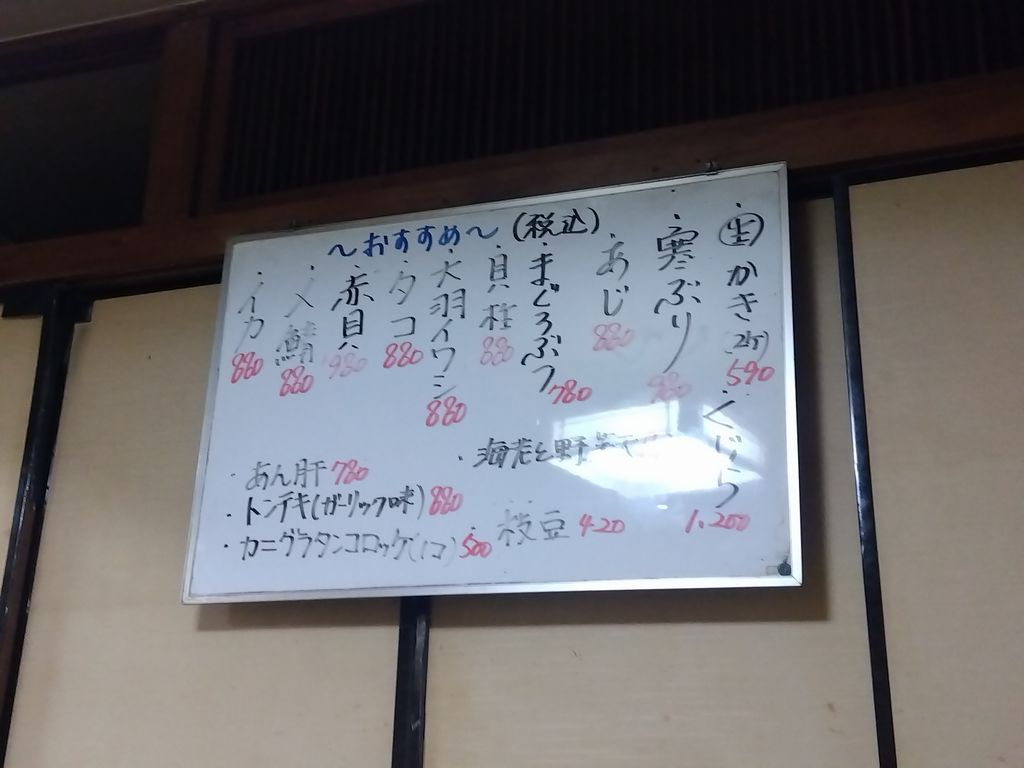 ～おすすめ～ (税込)
・生かき(2ケ) 590
・くじら 1,200
・寒ぶり 980
・あじ 880
・まぐろぶつ 780
・貝柱 880
・大羽イワシ 880
・タコ 880
・赤貝 980
・〆鯖 880
・イカ 880
・海老と野菜天
・あん肝 780
・トンテキ(ガーリック味) 880
・カニグラタンコロッケ(1コ) 500
・枝豆 420